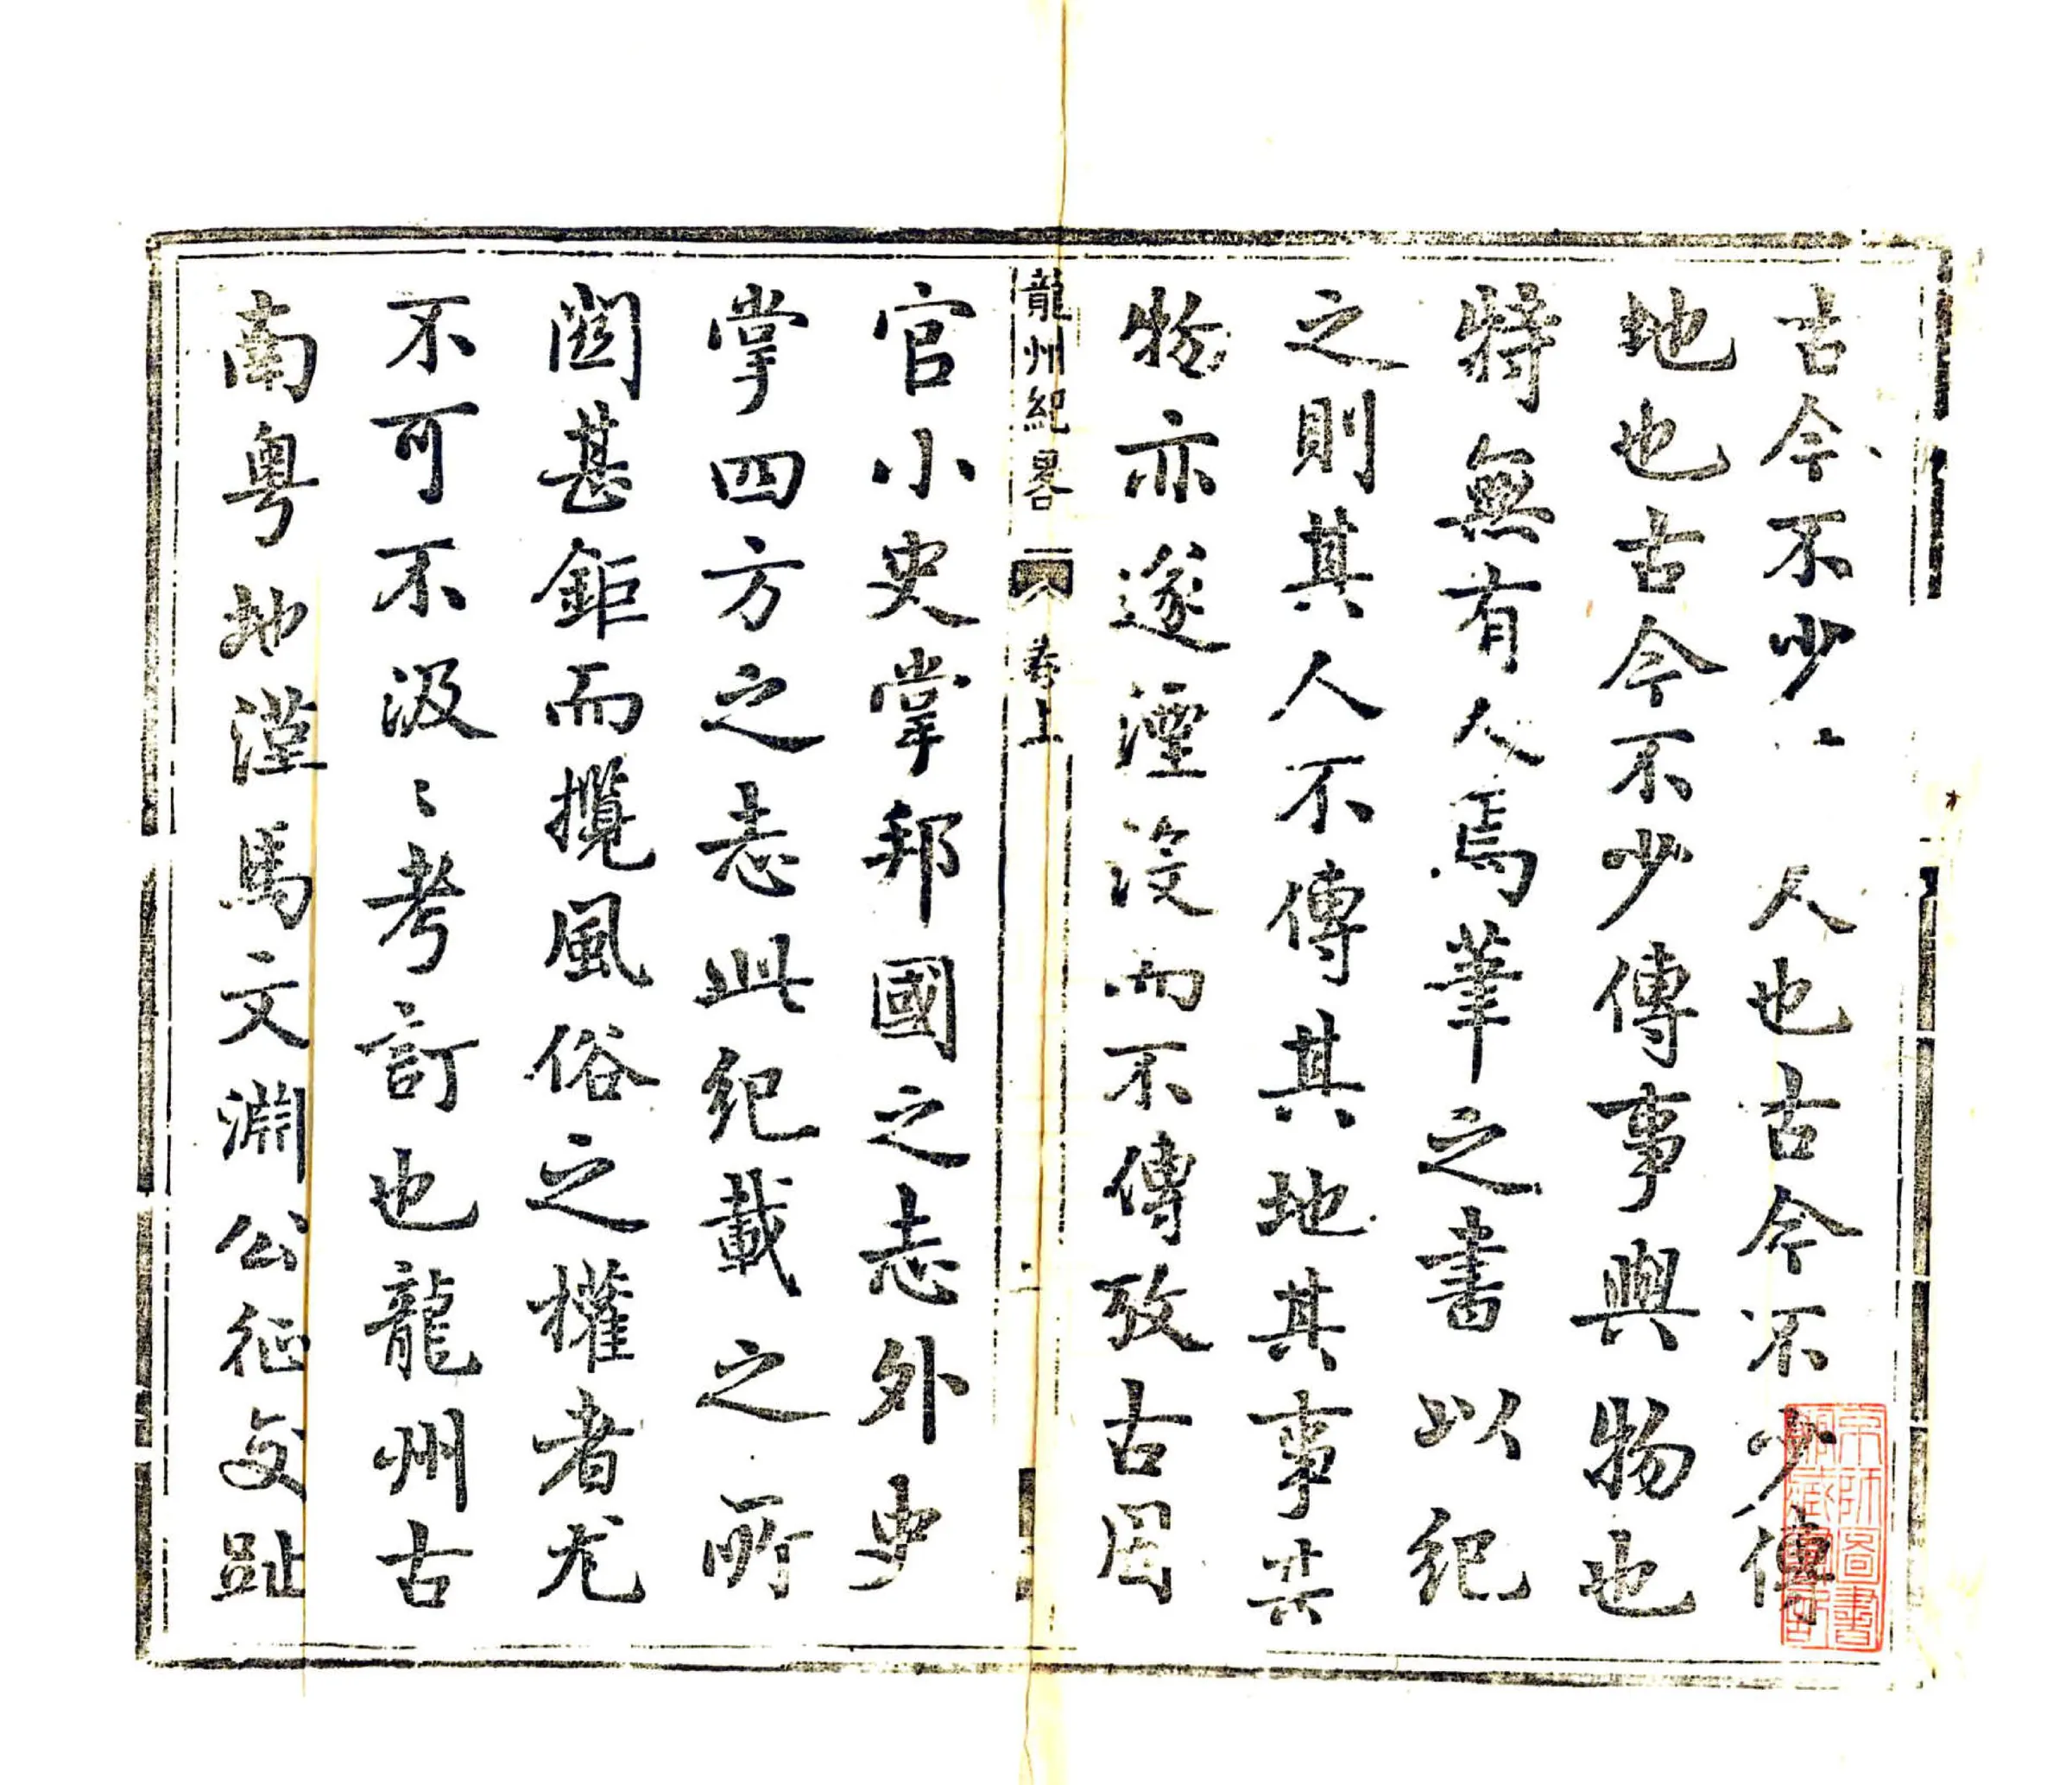 古今不少 人也古今不少傳
地也古今不少傳事與物也
特無有人焉筆之書以紀
之則其人不傳其地其事其
物亦遂湮沒而不傳攷古周
龍州紀畧 卷上
官小史掌邦國之志外史
掌四方之志此紀載之所
關甚鉅而攬風俗之權者尤
不可不汲〻考訂也龍州古
南粤地漢馬文淵公征交趾
京師圖書